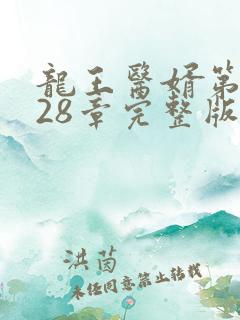 龍王醫婿第
28章完整版
洪茵
未任同意禁止轉載